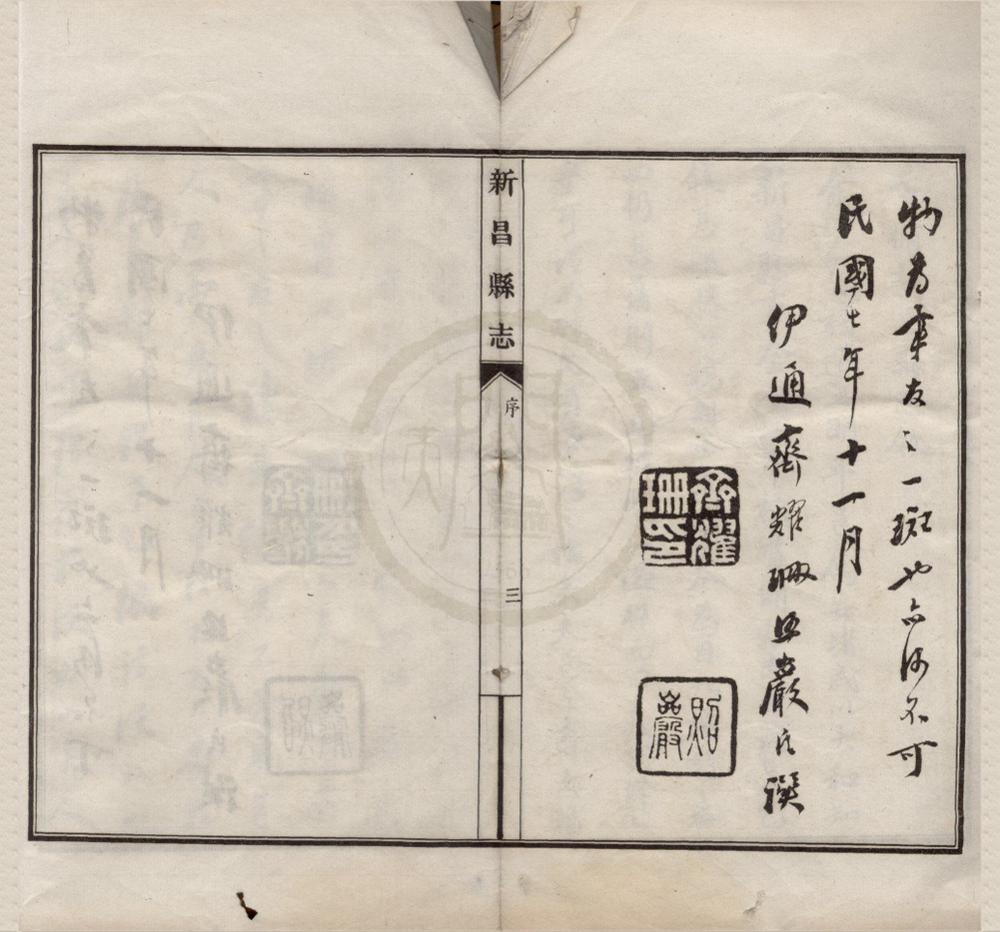 物為友之一斑也亦何不可
民國七年十一月
伊通齊耀珊照巖氏撰
齊耀珊印
照巖
新昌縣志
序
三